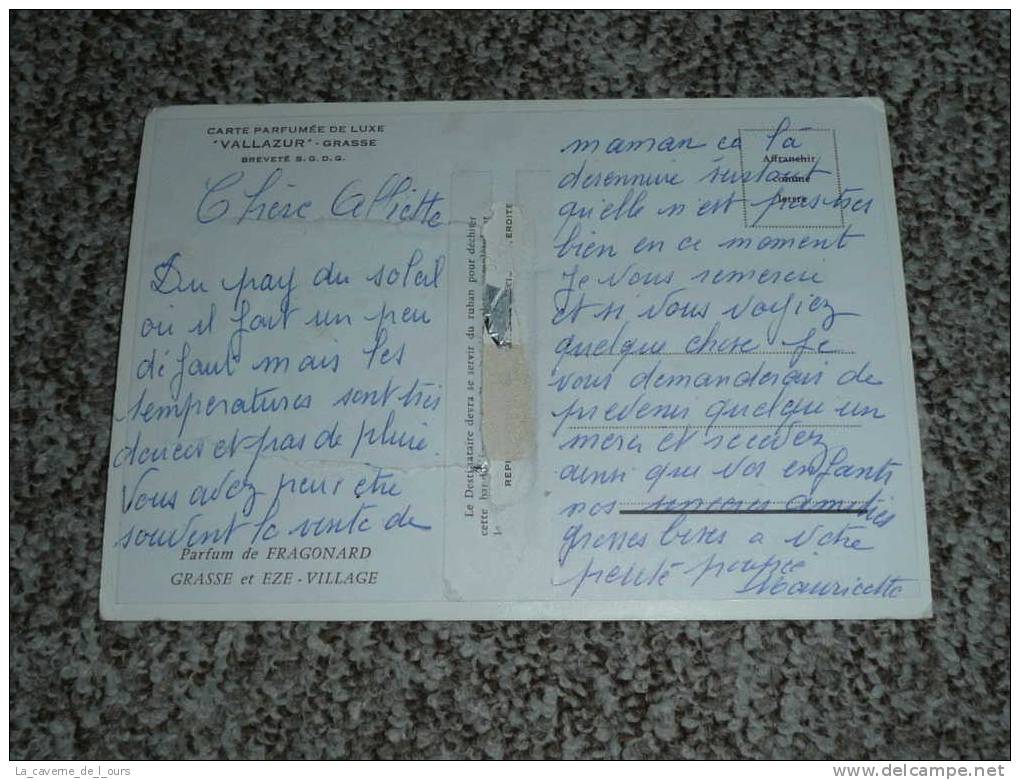 CARTE PARFUMÉE DE LUXE
"VALLAZUR" - GRASSE
BREVETÉ S. G. D. G.
Chère
Du pay du soleil
ou il fait un peu
défaut mais les
temperatures sont très
douces et pas de pluie.
Vous avez peus être
souvent la vente de
Parfum de FRAGONARD
GRASSE et EZE - VILLAGE
Le Destinataire devra se servir du ruban pour déchirer
cette
maman ca la
Affranchir
comme
lettre
surtout
qu'elle n'est pas tres
bien en ce moment
Je vous remerci
et si vous voyiez
quelque chose Je
vous demanderai de
prevenir quelque un
merci et recevez
ainsi que vos enfants
nos sinceres amities
grosses bises a votre
petite poupée
Mauricette
La_caverne_de_l_ours
delcampe.net